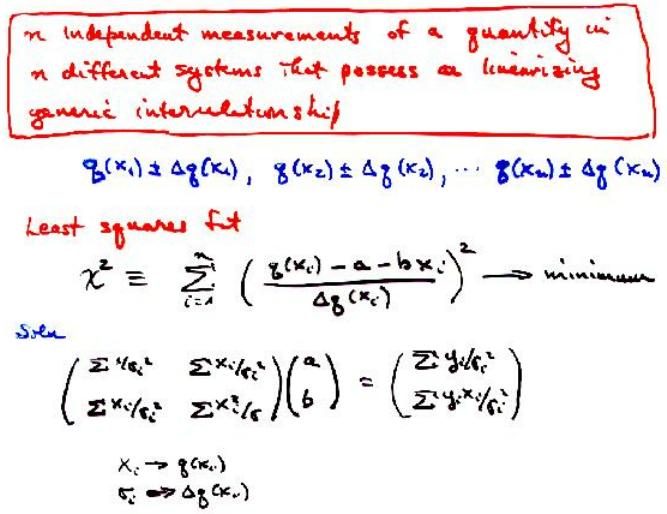 n independent measurements of a quantity in
n different systems that possess a linearizing
generic interrelationship
q(x₁) ± Δq(x₁), q(x₂) ± Δq(x₂), ... q(xₙ) ± Δq(xₙ)
Least squares fit
χ² ≡ Σᵢ₌₁ⁿ ( (q(xᵢ) - a - bxᵢ) / Δq(xᵢ) )² → minimum
Soln
( Σ 1/σᵢ² Σ xᵢ/σᵢ² ) ( a ) = ( Σ yᵢ/σᵢ² )
( Σ xᵢ/σᵢ² Σ xᵢ²/σ ) ( b ) ( Σ yᵢxᵢ/σᵢ² )
xᵢ → q(xᵢ)
σᵢ → Δq(xᵢ)